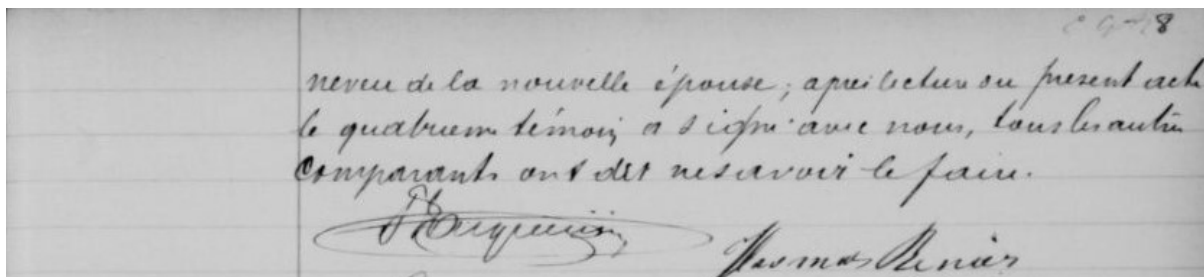 8
neveu de la nouvelle épouse; après lecture du present acte
le quatrieme témoin a signé avec nous, tous les autres
comparants ont dit ne savoir le faire.
Thomas Renier